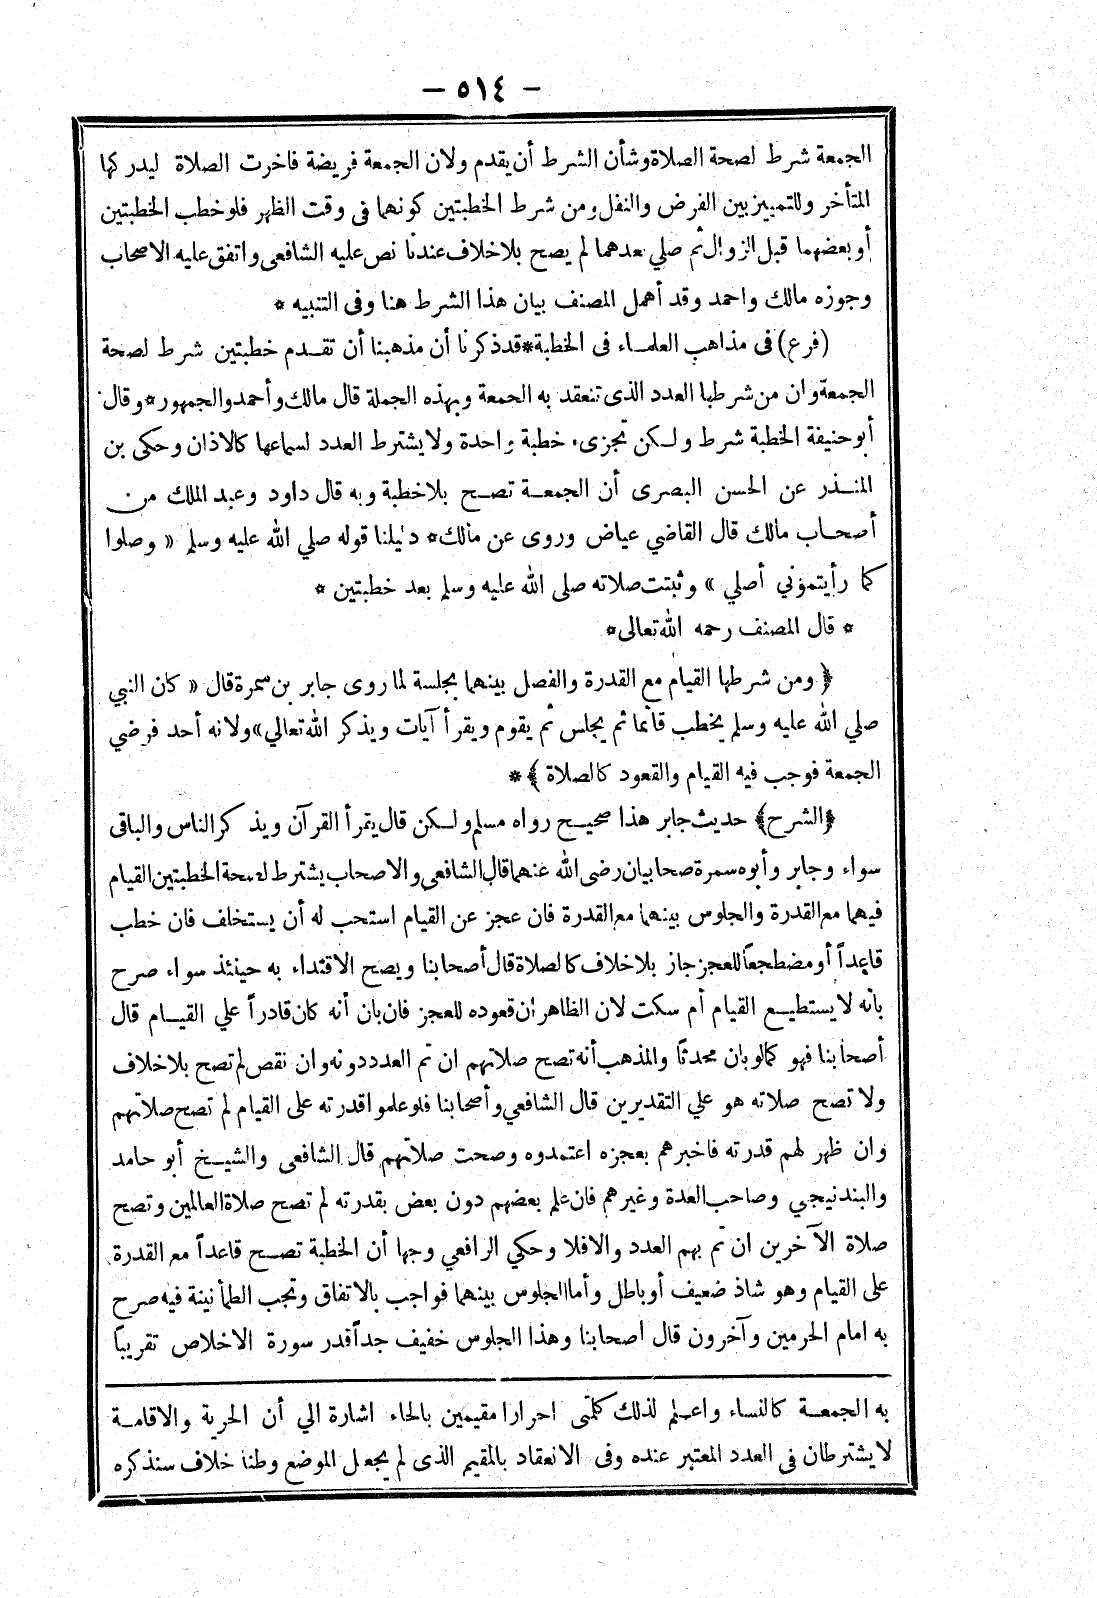 — ٥١٤ —
الجمعة شرط لصحة الصلاة وشأن الشرط أن يقدم ولان الجمعة فريضة فاخرت الصلاة ليدركها
المتأخر وللتمييز بين الفرض والنفل ومن شرط الخطبتين كونهما فى وقت الظهر فلو خطب الخطبتين
أو بعضهما قبل الزوال ثم صلي بعدهما لم يصح بلا خلاف عندنا نص عليه الشافعى واتفق عليه الاصحاب
وجوزه مالك واحمد وقد أهمل المصنف بيان هذا الشرط هنا وفى التنبيه *
(فرع) فى مذاهب العلماء فى الخطبة * قد ذكرنا أن مذهبنا أن تقدم خطبتين شرط لصحة
الجمعة وان من شرطها العدد الذى تنعقد به الجمعة وبهذه الجملة قال مالك وأحمد والجمهور * وقال
أبو حنيفة الخطبة شرط ولكن تجزىء خطبة واحدة ولا يشترط العدد لسماعها كالاذان وحكى بن
المنذر عن الحسن البصرى أن الجمعة تصح بلا خطبة وبه قال داود وعبد الملك من
أصحاب مالك قال القاضي عياض وروى عن مالك * دليلنا قوله صلي الله عليه وسلم « وصلوا
كما رأيتمونى أصلي » وثبتت صلاته صلى الله عليه وسلم بعد خطبتين *
* قال المصنف رحمه الله تعالى *
﴿ ومن شرطها القيام مع القدرة والفصل بينهما بجلسة لما روى جابر بن سمرة قال « كان النبي
صلي الله عليه وسلم يخطب قائما ثم يجلس ثم يقوم ويقرأ آيات ويذكر الله تعالي » ولانه أحد فرضي
الجمعة فوجب فيه القيام والقعود كالصلاة ﴾ *
﴿الشرح﴾ حديث جابر هذا صحيح رواه مسلم ولكن قال يقرأ القرآن ويذكر الناس والباقى
سواء وجابر وأبوه سمرة صحابيان رضى الله عنهما قال الشافعى والاصحاب يشترط لصحة الخطبتين القيام
فيهما مع القدرة والجلوس بينهما مع القدرة فان عجز عن القيام استحب له أن يستخلف فان خطب
قاعداً أو مضطجعاً للعجز جاز بلا خلاف كالصلاة قال أصحابنا ويصح الاقتداء به حينئذ سواء صرح
بانه لا يستطيع القيام أم سكت لان الظاهر أن قعوده للعجز فان بان أنه كان قادراً علي القيام قال
أصحابنا فهو كما لو بان محدثا والمذهب أنه تصح صلاتهم ان تم العدد دونه وان نقص لم تصح بلا خلاف
ولا تصح صلاته هو علي التقديرين قال الشافعي وأصحابنا فلو علموا قدرته على القيام لم تصح صلاتهم
وان ظهر لهم قدرته فاخبرهم بعجزه اعتمدوه وصحت صلاتهم قال الشافعى والشيخ أبو حامد
والبندنيجي وصاحب العدة وغيرهم فان علم بعضهم دون بعض بقدرته لم تصح صلاة العالمين وتصح
صلاة الآخرين ان تم بهم العدد والافلا وحكي الرافعي وجها أن الخطبة تصح قاعداً مع القدرة
على القيام وهو شاذ ضعيف أو باطل وأما الجلوس بينهما فواجب بالاتفاق وتجب الطمأنينة فيه صرح
به امام الحرمين وآخرون قال اصحابنا وهذا الجلوس خفيف جداً قدر سورة الاخلاص تقريباً
به الجمعة كالنساء واعلم لذلك كلمتى احرارا مقيمين بالحاء اشارة الي أن الحرية والاقامة
لا يشترطان في العدد المعتبر عنده وفى الانعقاد بالمقيم الذى لم يجعل الموضع وطنا خلاف سنذكره